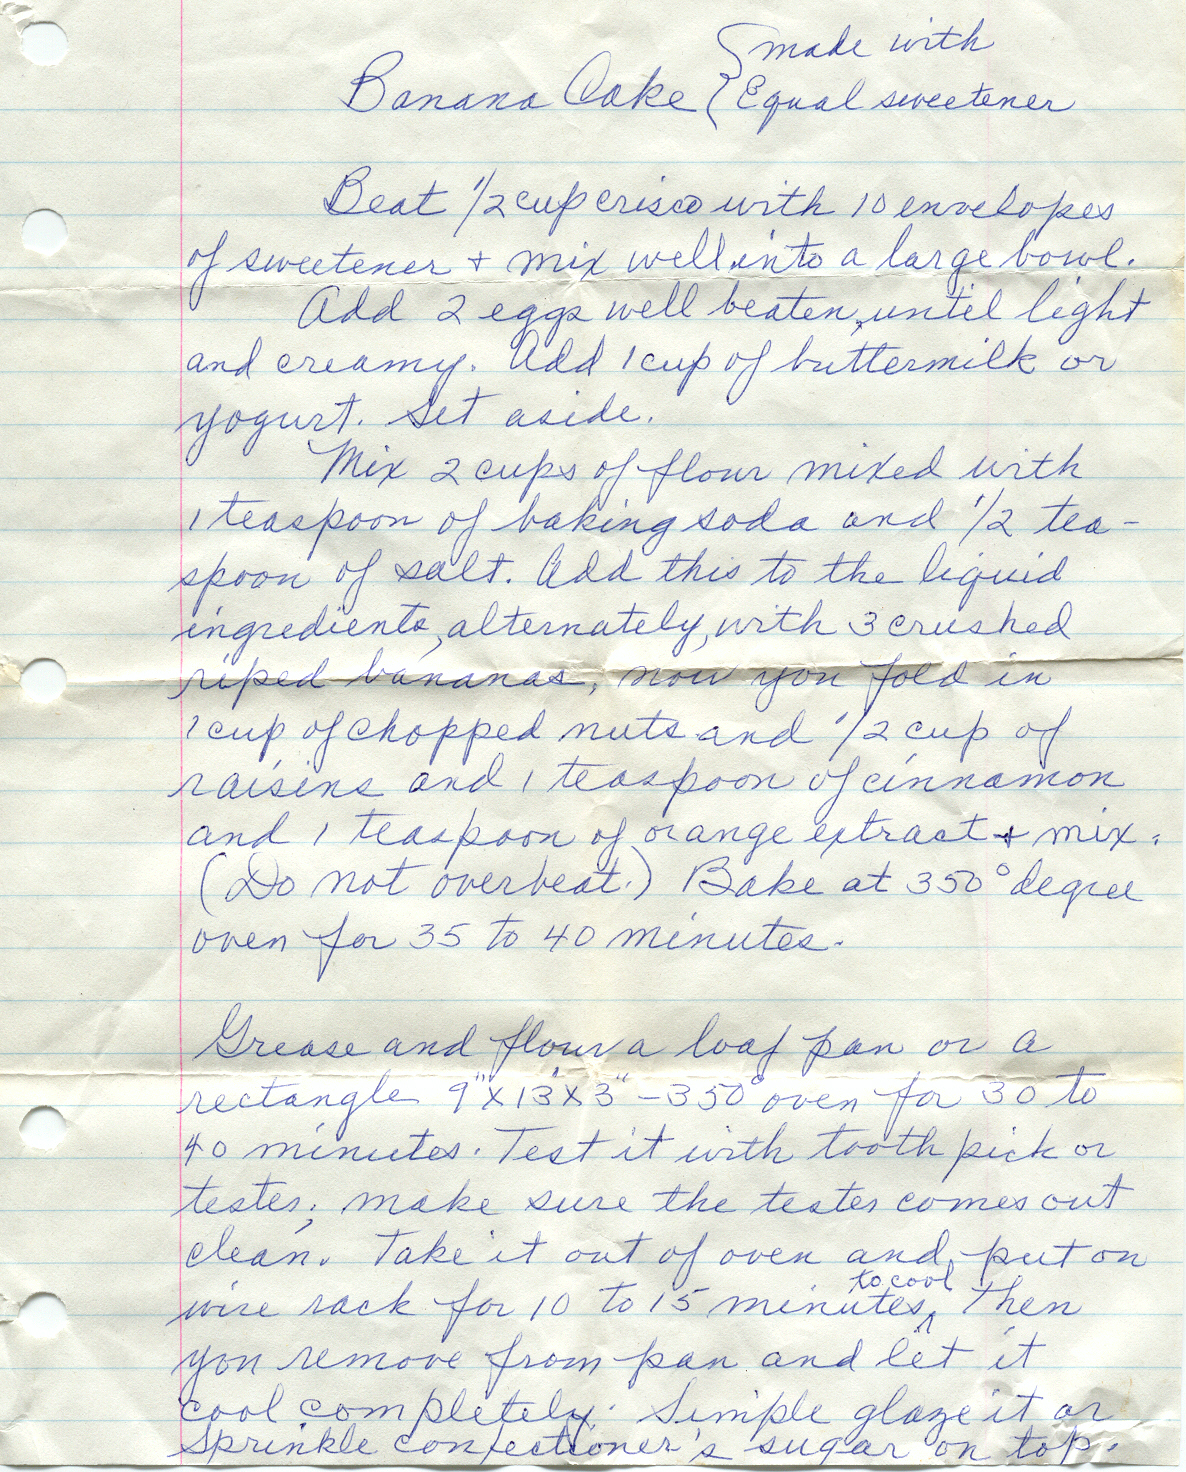 made with
Banana Cake { Equal sweetener
Beat 1/2 cup crisco with 10 envelopes
of sweetener + mix well into a large bowl.
Add 2 eggs well beaten, until light
and creamy. Add 1 cup of buttermilk or
yogurt. Set aside.
Mix 2 cups of flour mixed with
1 teaspoon of baking soda and 1/2 tea-
spoon of salt. Add this to the liquid
ingredients, alternately, with 3 crushed
riped bananas, now you fold in
1 cup of chopped nuts and 1/2 cup of
raisins and 1 teaspoon of cinnamon
and 1 teaspoon of orange extract + mix.
(Do not overbeat.) Bake at 350° degree
oven for 35 to 40 minutes.
Grease and flour a loaf pan or a
rectangle 9"x13"x3" - 350° oven for 30 to
40 minutes. Test it with tooth pick or
tester; make sure the tester comes out
clean. Take it out of oven and put on
to cool
wire rack for 10 to 15 minutes, then
you remove from pan and let it
cool completely. Simple glaze it or
sprinkle confectioner's sugar on top.